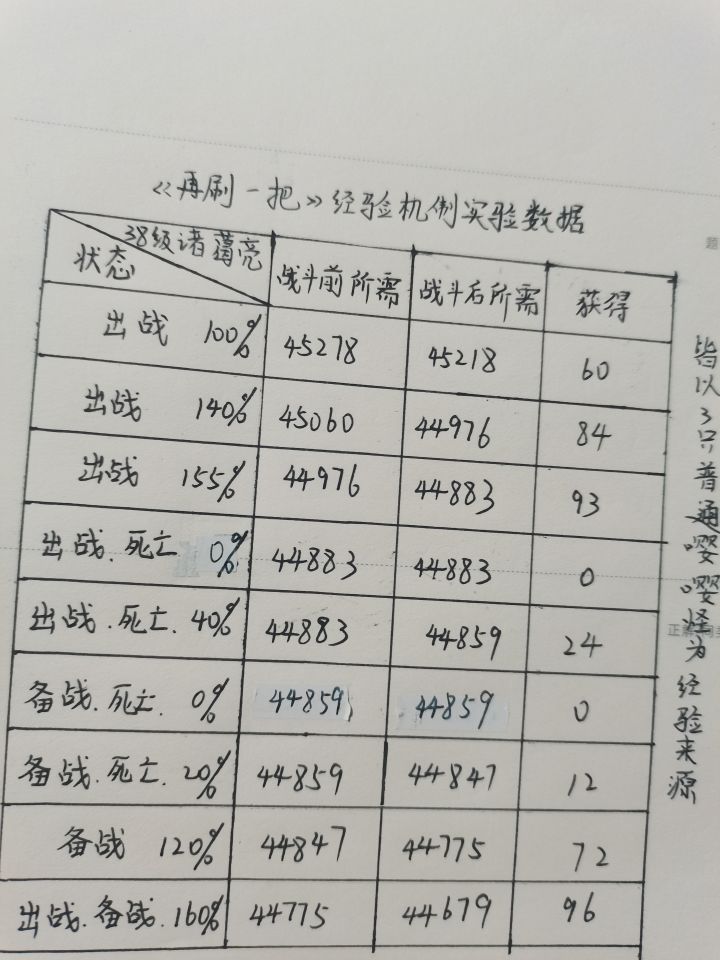 《再刷一把》经验机制实验数据
38级诸葛亮
状态 战斗前所需 战斗后所需 获得
出战 100% 45278 45218 60
出战 140% 45060 44976 84
出战 155% 44976 44883 93
出战.死亡 0% 44883 44883 0
出战.死亡.40% 44883 44859 24
备战.死亡. 0% 44859 44859 0
备战.死亡.20% 44859 44847 12
备战 120% 44847 44775 72
出战.备战.160% 44775 44679 96
皆以3只普通嘤嘤怪为经验来源